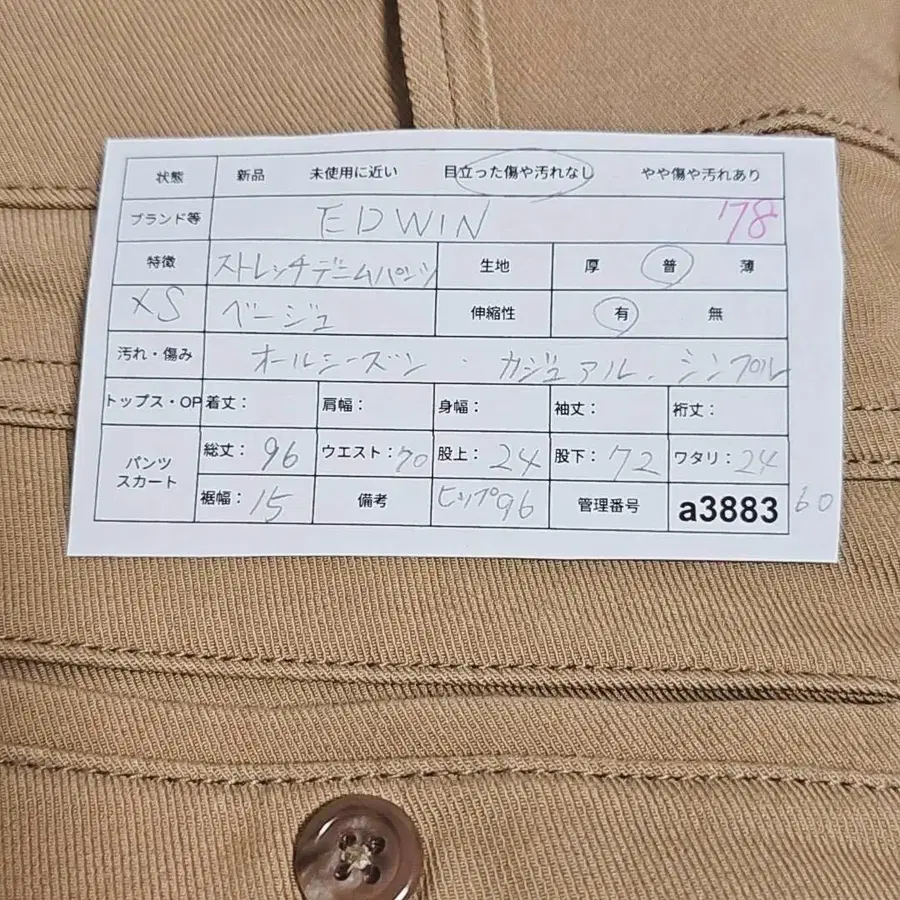 状態 新品 未使用に近い 目立った傷や汚れなし やや傷や汚れあり
ブランド等 EDWIN '78
特徴 ストレッチデニムパンツ 生地 厚 普 薄
XS ベージュ 伸縮性 有 無
汚れ・傷み オールシーズン・カジュアル.シンプル
トップス・OP 着丈: 肩幅: 身幅: 袖丈: 裄丈:
パンツ 総丈: 96 ウエスト: 70 股上: 24 股下: 72 ワタリ: 24
スカート
裾幅: 15 備考 ヒップ96 管理番号 a3883 60